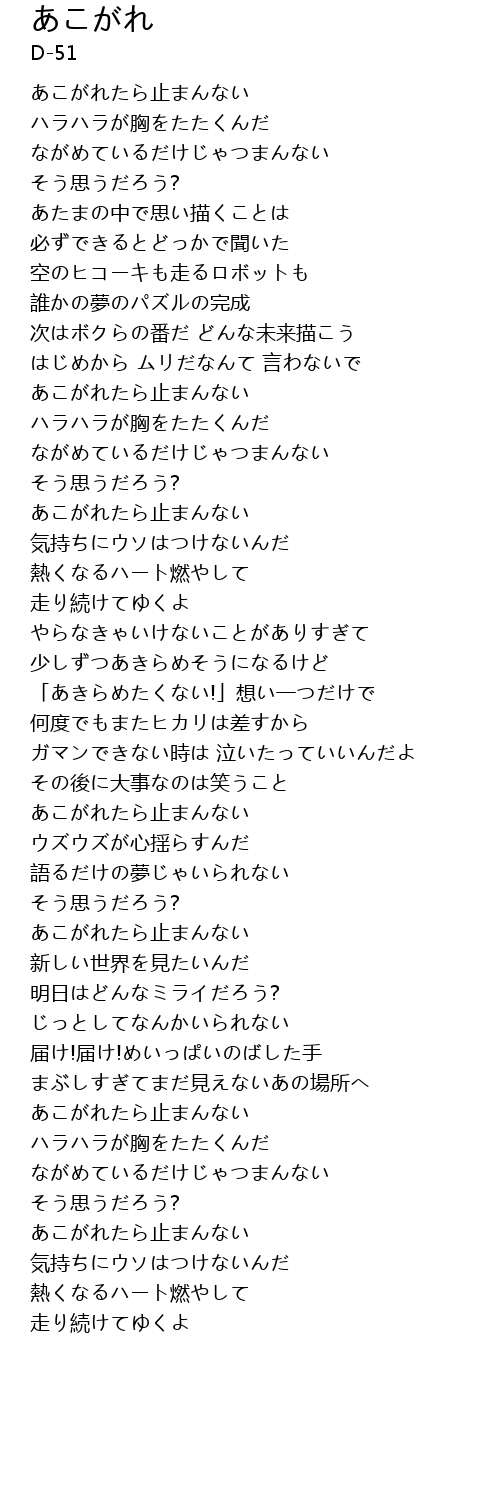 あこがれ
D-51
あこがれたら止まんない
ハラハラが胸をたたくんだ
ながめているだけじゃつまんない
そう思うだろう?
あたまの中で思い描くことは
必ずできるとどっかで聞いた
空のヒコーキも走るロボットも
誰かの夢のパズルの完成
次はボクらの番だ どんな未来描こう
はじめから ムリだなんて 言わないで
あこがれたら止まんない
ハラハラが胸をたたくんだ
ながめているだけじゃつまんない
そう思うだろう?
あこがれたら止まんない
気持ちにウソはつけないんだ
熱くなるハート燃やして
走り続けてゆくよ
やらなきゃいけないことがありすぎて
少しずつあきらめそうになるけど
「あきらめたくない!」想い一つだけで
何度でもまたヒカリは差すから
ガマンできない時は 泣いたっていいんだよ
その後に大事なのは笑うこと
あこがれたら止まんない
ウズウズが心揺らすんだ
語るだけの夢じゃいられない
そう思うだろう?
あこがれたら止まんない
新しい世界を見たいんだ
明日はどんなミライだろう?
じっとしてなんかいられない
届け!届け!めいっぱいのばした手
まぶしすぎてまだ見えないあの場所へ
あこがれたら止まんない
ハラハラが胸をたたくんだ
ながめているだけじゃつまんない
そう思うだろう?
あこがれたら止まんない
気持ちにウソはつけないんだ
熱くなるハート燃やして
走り続けてゆくよ